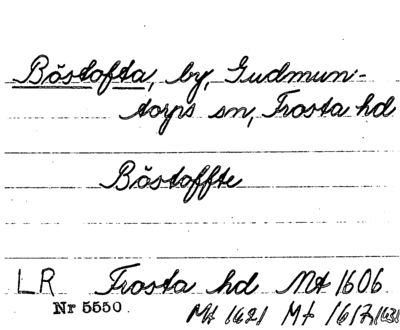 Böstofta, by, Gudmun-
torps sn, Frosta hd
Böstoffte
LR Frosta hd Mt 1606
Nr 5550 Mt 1621 Mt 1617, 1631